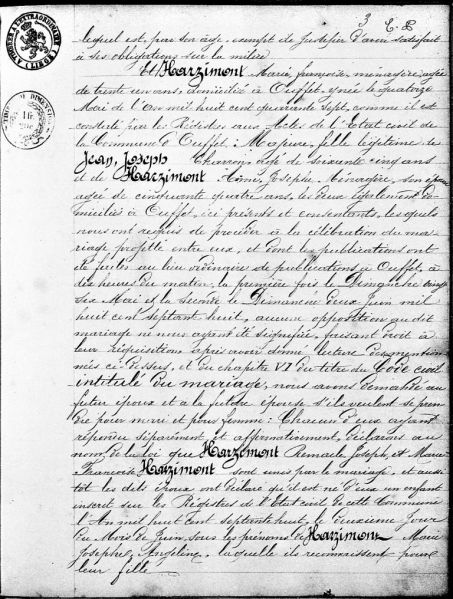 3 C. P.
lequel est, par son âge, exempt de justifier d'avoir satisfait
à ses obligations sur la milice
Et Harzimont Marie, françoise, ménagère, agée
de trente un ans, domiciliée à Ouffet, y née le quatorze
Mai de l'an mil huit cent quarante sept, comme il est
constaté par les Régistres aux Actes de l'Etat civil de
la Commune d'Ouffet: Majeure, fille légitime de
Jean, Joseph Charron, agé de soixante cinq ans
et de Harzimont Josephe, Ménagère, son
agée de cinquante quatre ans, les deux également do-
miciliés à Ouffet, ici présents et consentants, lesquels
nous ont requis de procéder à la célébration du ma-
riage projetté entre eux, et dont les publications ont
été faites au lieu ordinaire de publications à Ouffet, à
dix heures du matin, la première fois le Dimanche vingt
six Mai et la seconde le Dimanche deux Juin mil
huit cent septant huit, aucune opposition au dit
mariage ne nous ayant été signifiée, faisant droit à
leur réquisition, après avoir donné lecture des
ci-dessus, et du chapitre VI du titre du Code civil
intitulé du mariage, nous avons demandé au
futur époux et à la future épouse s'ils veulent se pren-
dre pour mari et pour femme: Chacun d'eux ayant
répondu séparément et affirmativement, déclarons au
nom de la loi que Harzimont Remacle Joseph, et Marie
Françoise Harzimont sont unis par le mariage, et aussi-
tôt les dits époux ont déclaré qu'il est né d'eux un enfant
inscrit sur les Régistres de l'Etat civil de cette Commune
l'An mil huit cent septante huit, le deuxième Jour
du Mois de Juin, sous les prénoms de Harzimont Marie
Josephe, Angeline, laquelle ils reconnaissent pour
leur fille